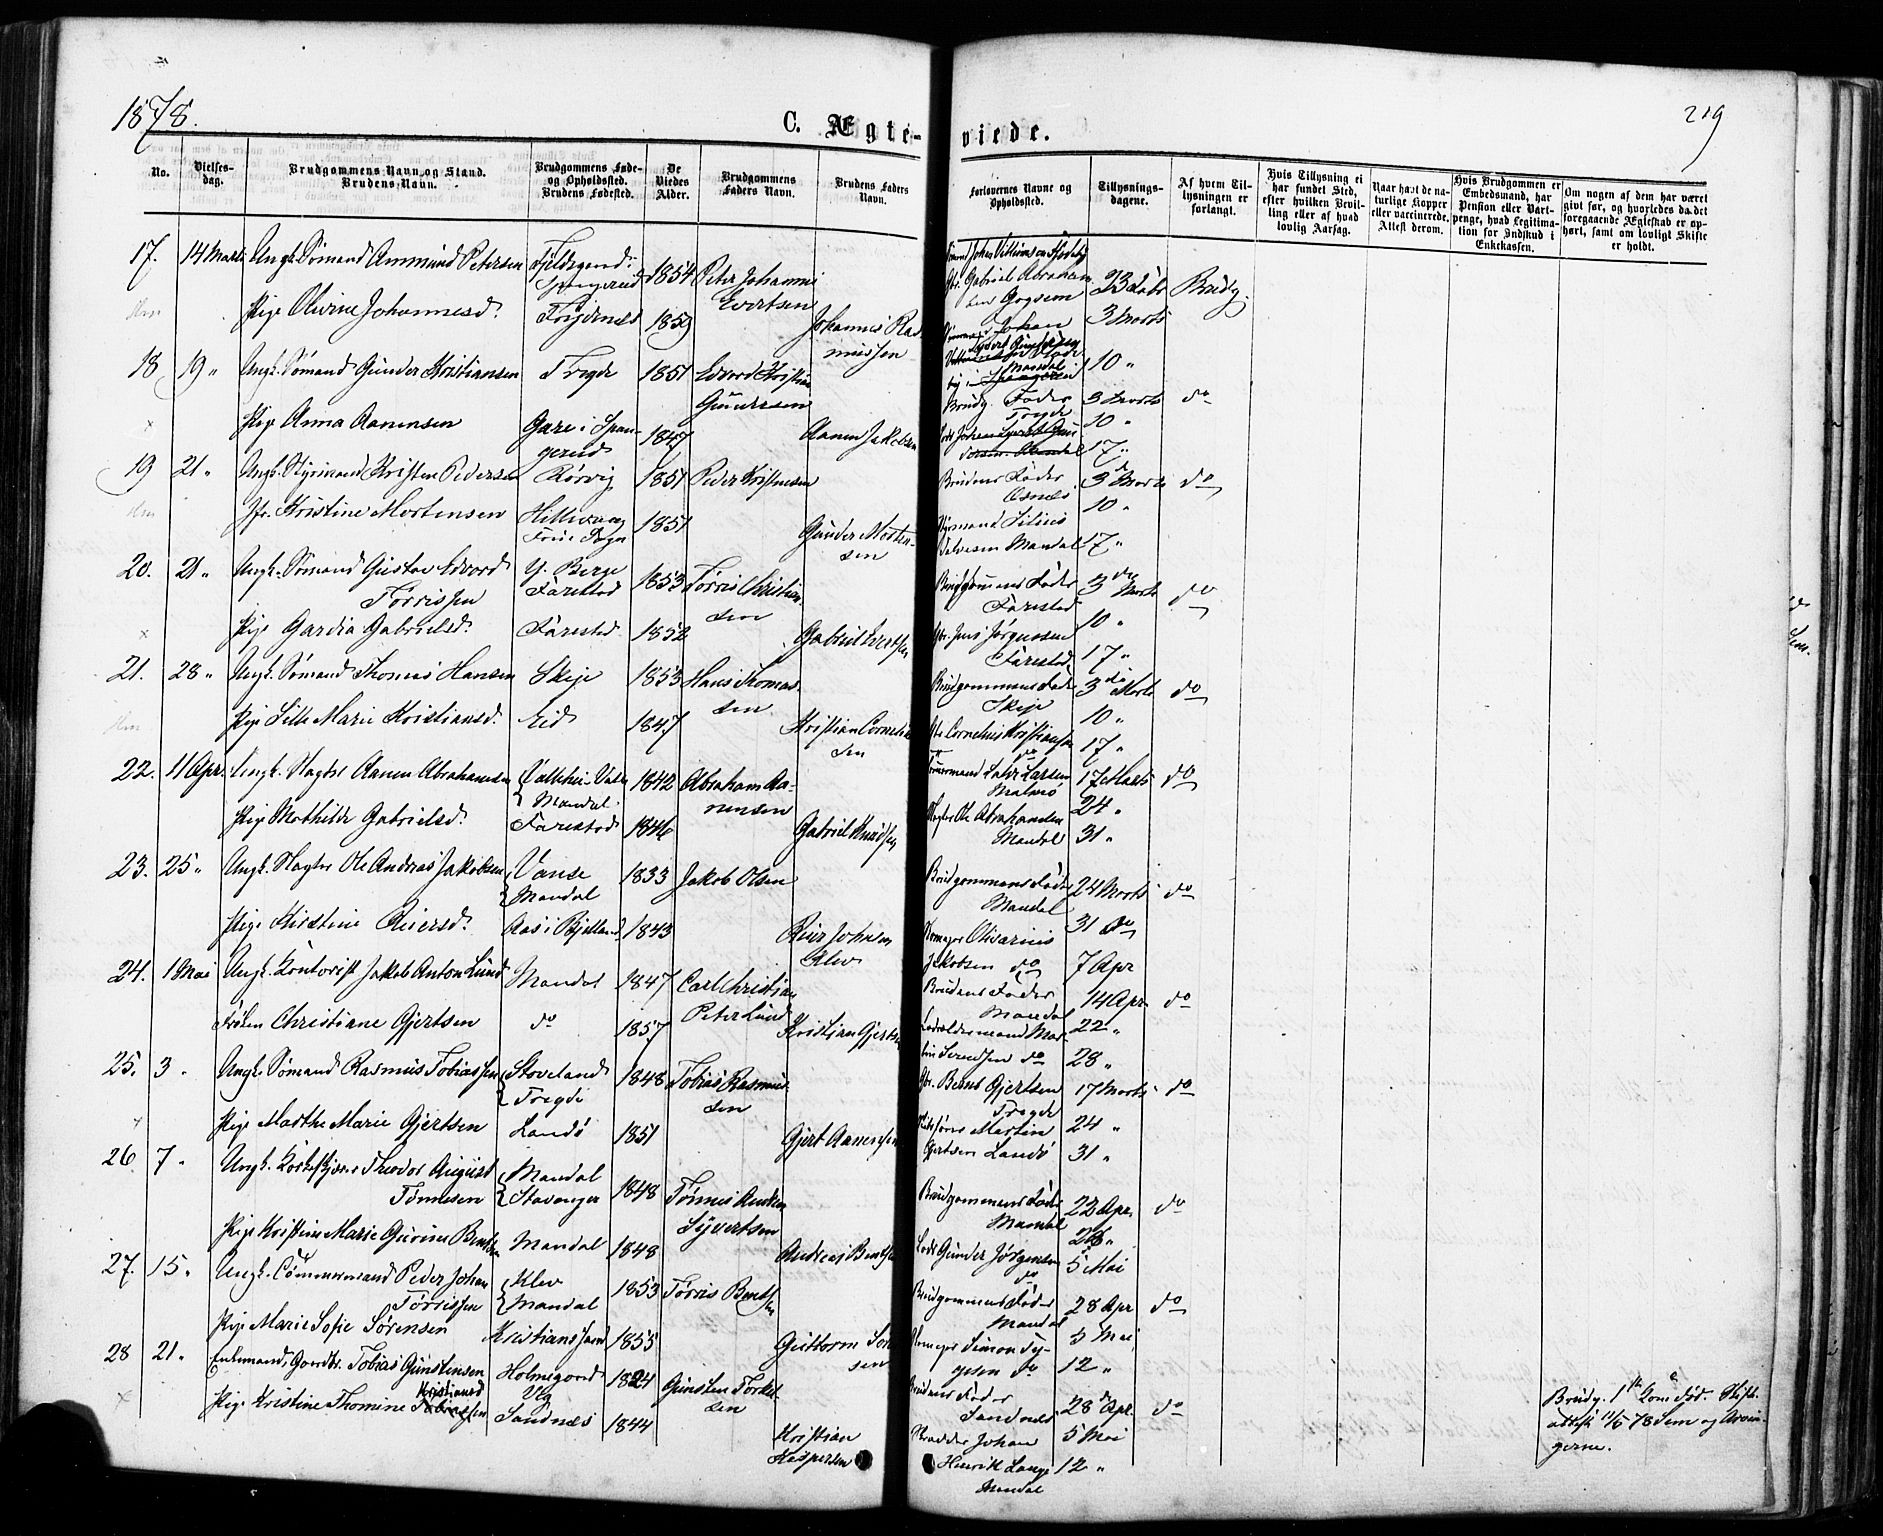 1878.
C. Ægte-
viede.
219
No.
Vielses-
dag.
Brudgommens Navn og Stand.
Brudens Navn.
Brudgommens Føde-
og Opholdssted.
Brudens Fødested.
De
Viedes
Alder.
Brudgommens
Faders Navn.
Brudens Faders
Navn.
Forlovernes Navne og
Opholdssted.
Tillysnings-
dagene.
Af hvem Til-
lysningen er
forlangt.
Hvis Tillysning ei
har fundet Sted,
efter hvilken Bevil-
ling eller af hvad
lovlig Aarsag.
Naar havt de na-
turlige Kopper
eller vaccinerede.
Attest derom.
Hvis Brudgommen er
Embedsmand, har
Pension eller Vart-
penge, hvad Legitima-
tion for Indskud i
Enkekassen.
Om nogen af dem har været
givt før, og hvorledes da det
foregaaende Ægteskab er op-
hørt, samt om lovligt Skifte
er holdt.
17. 14 Marts Ungk. Sømand Ammund Petersen 1854 Peter Johannes
Evertsen 23 Febr Brudg.
Pige Olivine Johannesd. 1859 Johannes Ras
mussen 3 Marts
18 19 " Ungk. Sømand Gunder Kristiansen Tregde 1851 Edvard Kristian
Gundersen 10 "
Brudg. Fader 3 Marts do
Tregde
Pige Anna Aanensen Gare i Span-
gereid 1847 Aanen Jakobsen 10 "
17 "
19 21 " Ungk. Styrmand Kristen Pedersen Rørvig 1851 Peder Kristensen Brudens Fader 3 Marts do
Jfr. Kristine Mortensen 1851 Gunder Morten-
sen Mandal 10 "
17 "
20. 21 " Ungk. Sømand Gustav Edvard
Tørrissen Y. Berge
Farestad 1853 Tørris Christian
sen Brudgommens Fader
Farestad 3 Marts do
Pige Gardia Gabrielsd. Farestad 1852 Gabriel Evertsen Jens Jørgensen
Farestad 10 "
17 "
21. 28 " Ungk. Sømand Thomas Hansen Skeje 1853 Hans Thomas-
sen Brudgommens Fader
Skeje 3 Marts do
Pige Sille Marie Kristiansd. Eid 1847 Kristian Corneliu
sen Cornelius Kristiansen
do 10 "
17 "
22. 11 Apr. Ungk. Slagter Aanen Abrahamsen
Mandal 1842 Abraham Aa-
nensen Larsen
Malmø 17 Marts do
Pige Mathilde Gabrielsd. Farestad 1846 Gabriel Knudsen Slagter Ole Abrahamsen
Mandal 24 "
31 "
23. 25 " Ungk. Slagter Ole Andreas Jakobsen Vanse
Mandal 1833 Jakob Olsen Brudgommens Fader
Mandal 24 Marts do
Pige Kirstine Reiersd. Aas i Bjelland 1843 Reier Johnsen
Klev Olivarius
Jakobsen do 31 do
7 Apr
24. 1 Mai Ungk. Kontorist Jakob Anton Lund Mandal 1847 Carl Christian
Peter Lund Brudens Fader
Mandal 14 Apr. do
Frøken Christiane Gjertsen do 1857 Kristian Gjertsen Lodsoldermand Mar-
tin Svendsen do 22 "
28 "
25. 3 " Ungk. Sømand Rasmus Tobiassen Stoveland
Tregde 1848 Tobias Rasmus
sen Gbr. Bernt Gjertsen
Tregde 17 Marts do
Pige Marthe Marie Gjertsen Landø 1851 Gjert Aanensen Martin
Gjertsen Landø 24 "
31 "
26 7 " Ungk. Theodor August
Tønnesen Mandal
Stavanger 1848 Tønnes
Syvertsen Brudgommens Fader
Mandal 22 Apr. do
Pige Kristine Marie Gurine Bentsen Mandal 1848 Andreas Bentsen Lods Gunder Jørgensen
do 28 "
5 Mai
27. 15 " Ungk. Tømmermand Peder Johan
Tørrissen Klev
Mandal 1853 Tørris Bentsen Brudgommens Fader
Mandal 28 Apr do
Pige Marie Sofie Sørensen Kristianssand 1855 Guttorm Sør
sen Simon
do 5 Mai
12 "
28 21 " Enkemand, Gaardbr. Tobias Gunstensen Holmegaard
1824 Gunsten Torkel-
sen Brudens Fader
Sandnæs 28 Apr. do
Pige Kristine Thomine Kristiansd Sandnæs 1844 Kristian
Kaspersen Johan
Henrik Lange
Mandal 5 Mai
12 "
Brudg. 1ste Kone død. Skift-
attest 11/5 78 Sem og Arvin-
gerne.